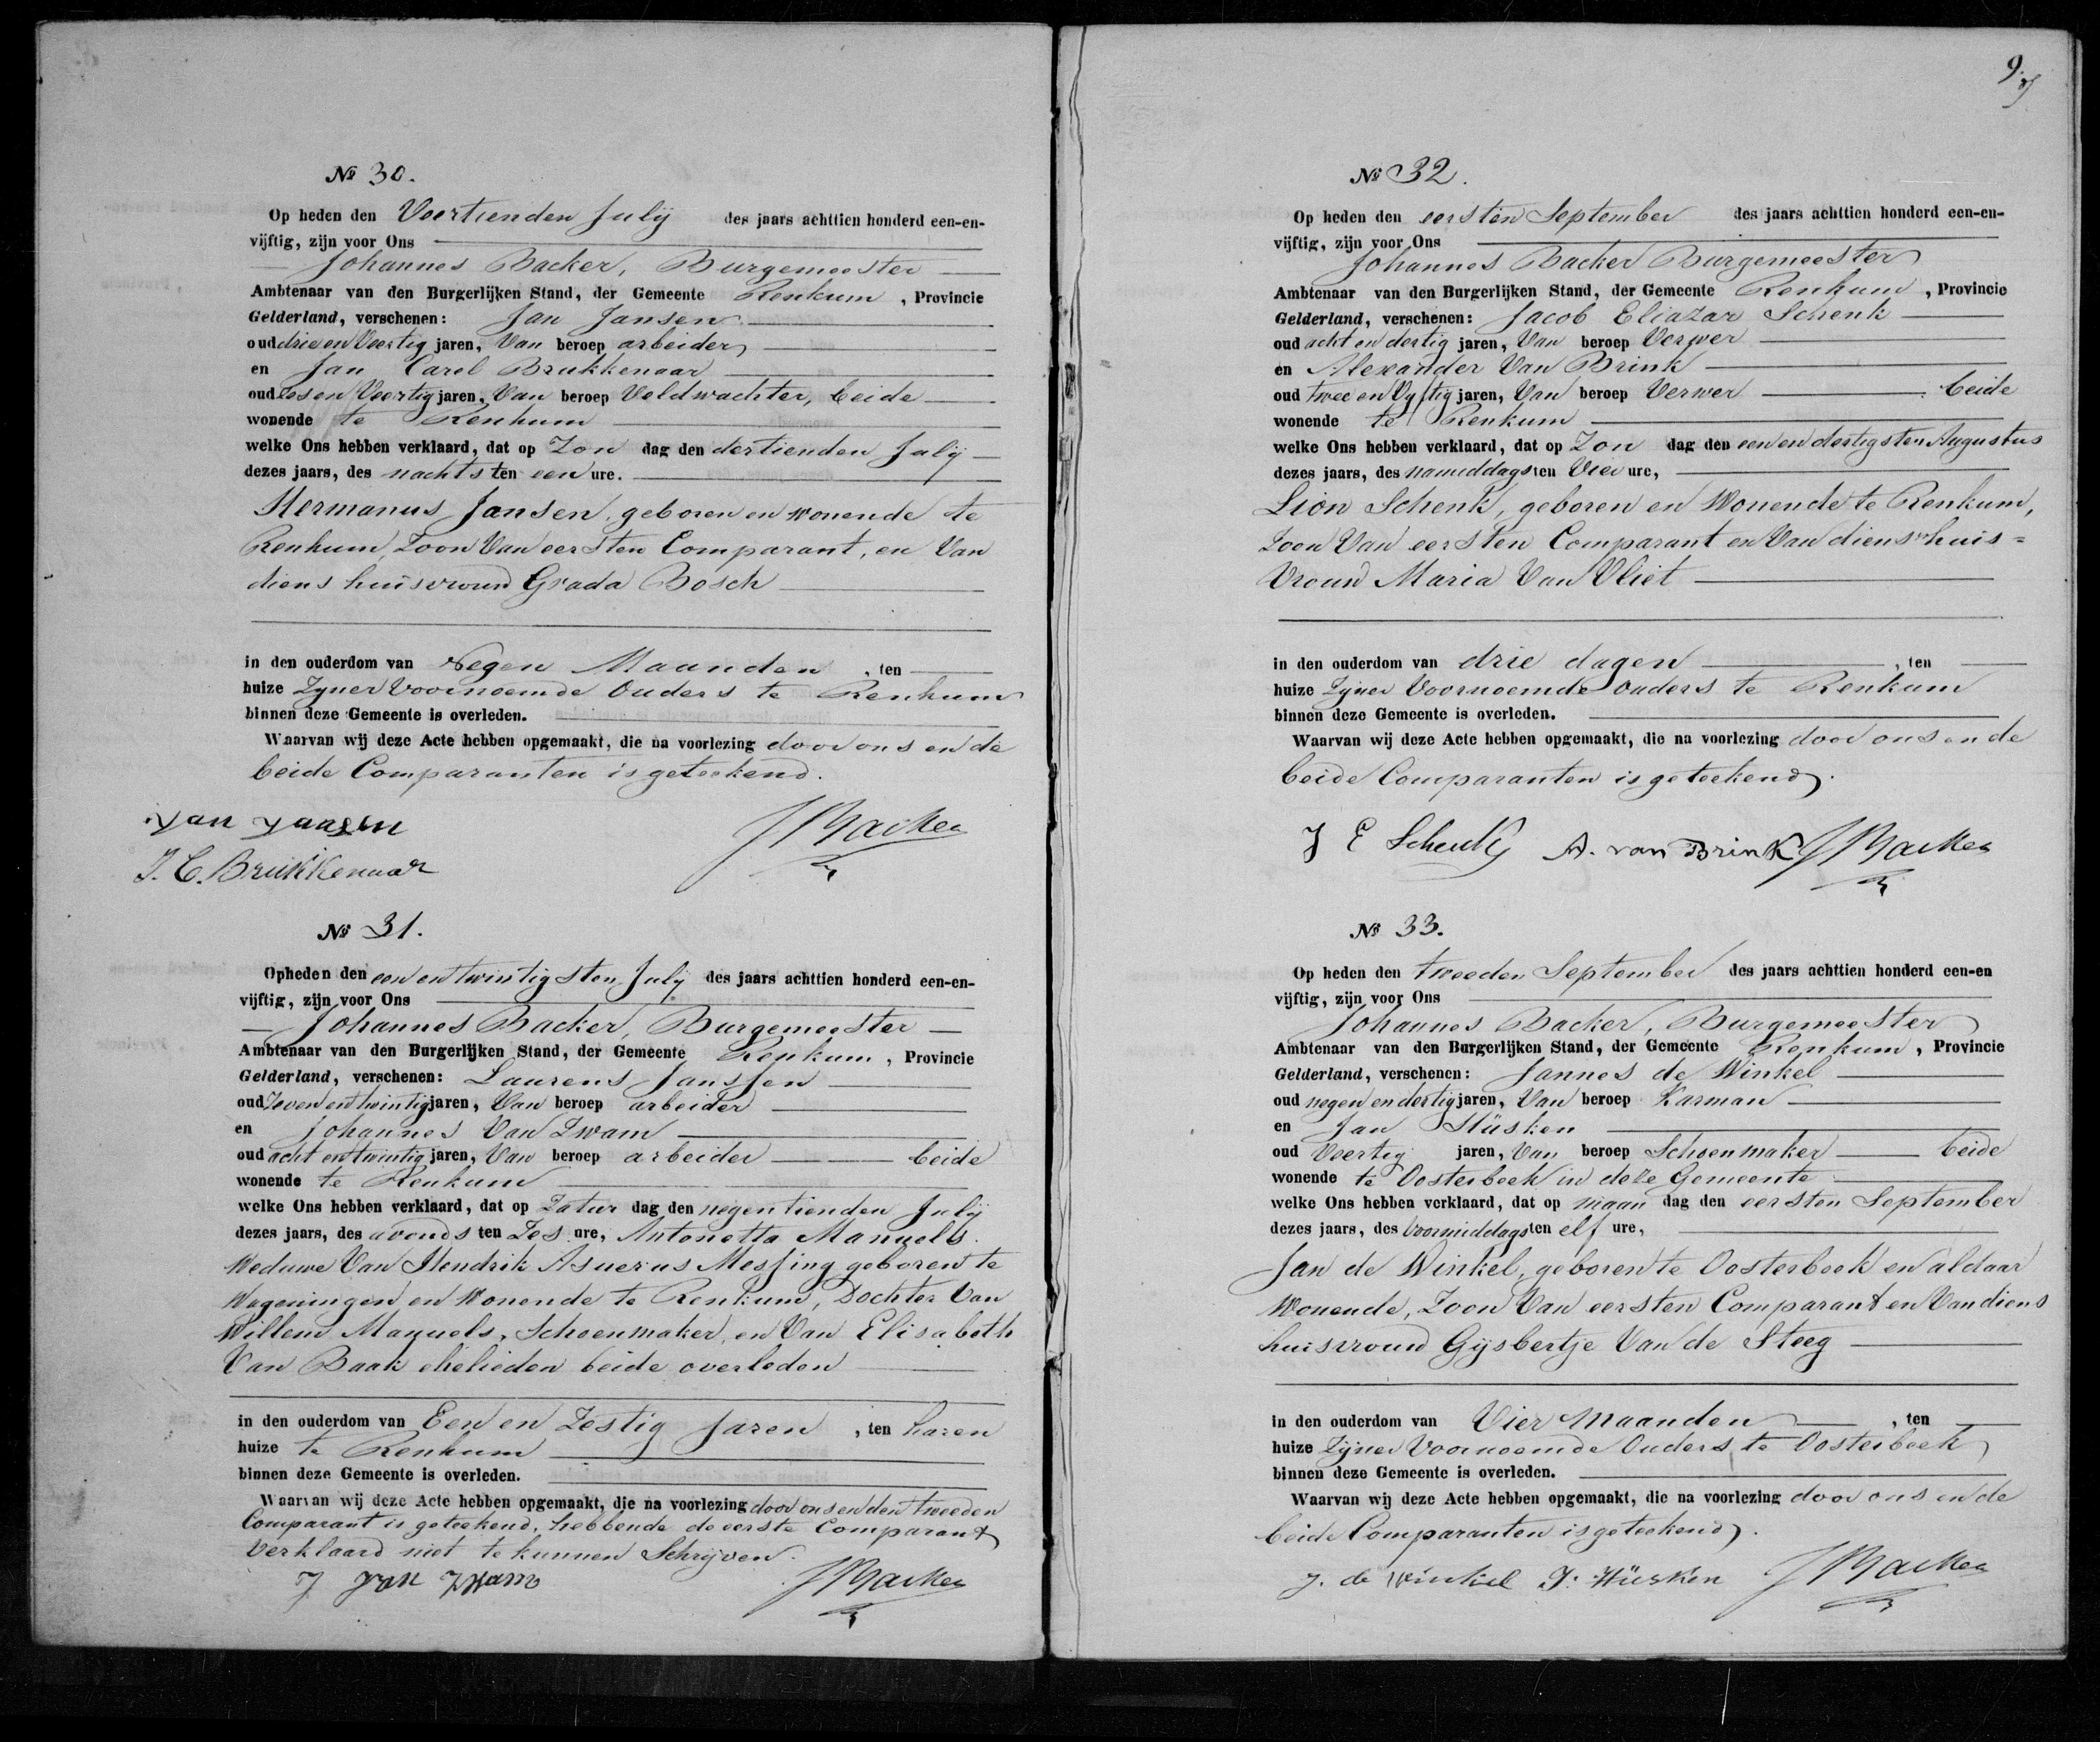 № 30.
Op heden den Veertienden Julij des jaars achttien honderd een-en-
vijftig, zijn voor Ons
Johannes Backer, Burgemeester
Ambtenaar van den Burgerlijken Stand, der Gemeente Renkum, Provincie
Gelderland, verschenen: Jan Jansen
oud drie en Veertig jaren, Van beroep arbeider
en Jan Carel Brukkenaar
oud zes en Veertig jaren, Van beroep Veldwachter, beide
wonende te Renkum
welke Ons hebben verklaard, dat op Zon dag den dertienden Julij
dezes jaars, des nachts ten een ure.
Hermanus Jansen, geboren en wonende te
Renkum, Zoon Van eersten Comparant, en Van
diens huisvrouw Grada Bosch
in den ouderdom van Negen Maanden, ten
huize Zijner Voornoemde Ouders te Renkum
binnen deze Gemeente is overleden.
Waarvan wij deze Acte hebben opgemaakt, die na voorlezing door ons en de
beide Comparanten is geteekend.
Jan Jansen JBacker
J. C. Brukkenaar
№ 31.
Op heden den een en twintigsten Julij des jaars achttien honderd een-en-
vijftig, zijn voor Ons
Johannes Backer, Burgemeester
Ambtenaar van den Burgerlijken Stand, der Gemeente Renkum, Provincie
Gelderland, verschenen: Laurens Janssen
oud Zeven en twintig jaren, Van beroep arbeider
en Johannes Van Zwam
oud acht en twintig jaren, Van beroep arbeider beide
wonende te Renkum
welke Ons hebben verklaard, dat op Zatur dag den negentienden Julij
dezes jaars, des avonds ten Zes ure, Antonetta Manuels.
Weduwe Van Hendrik Asuerus Messing geboren te
Wageningen en Wonende te Renkum, Dochter Van
Willem Manuels, Schoenmaker, en Van Elisabeth
Van Baak ehelieden beide overleden
in den ouderdom van Een en Zestig Jaren, ten haren
huize te Renkum
binnen deze Gemeente is overleden.
Waarvan wij deze Acte hebben opgemaakt, die na voorlezing door ons en den tweeden
Comparant is geteekend, hebbende de eerste Comparant
Verklaard niet te kunnen Schrijven.
J van Zwam JBacker
9
№ 32.
Op heden den eersten September des jaars achttien honderd een-en-
vijftig, zijn voor Ons
Johannes Backer Burgemeester
Ambtenaar van den Burgerlijken Stand, der Gemeente Renkum, Provincie
Gelderland, verschenen: Jacob Eliazar Schenk
oud acht en dertig jaren, Van beroep Verwer
en Alexander Van Brink
oud twee en Vyftig jaren, Van beroep Verwer beide
wonende te Renkum
welke Ons hebben verklaard, dat op Zon dag den een en dertigsten Augustus
dezes jaars, des namiddags ten Vier ure,
Lion Schenk, geboren en Wonende te Renkum,
Zoon Van eersten Comparant en Van diens huis=
Vrouw Maria Van Vliet
in den ouderdom van drie dagen, ten
huize Zijner Voornoemde ouders te Renkum
binnen deze Gemeente is overleden.
Waarvan wij deze Acte hebben opgemaakt, die na voorlezing door ons en de
beide Comparanten is geteekend.
J E Schenk A. van Brink JBacker
№ 33.
Op heden den tweeden September des jaars achttien honderd een-en
vijftig, zijn voor Ons
Johannes Backer, Burgemeester
Ambtenaar van den Burgerlijken Stand, der Gemeente Renkum, Provincie
Gelderland, verschenen: Jannes de Winkel
oud negen en dertig jaren, Van beroep Karman
en Jan Hüsken
oud Veertig jaren, Van beroep Schoenmaker beide
wonende te Oosterbeek in deze Gemeente
welke Ons hebben verklaard, dat op maan dag den eersten September
dezes jaars, des Voormiddags ten elf ure,
Jan de Winkel, geboren te Oosterbeek en aldaar
Wonende, Zoon Van eersten Comparant en Van diens
huisvrouw Gijsbertje Van de Steeg
in den ouderdom van Vier Maanden, ten
huize Zijner Voornoemde Ouders te Oosterbeek
binnen deze Gemeente is overleden.
Waarvan wij deze Acte hebben opgemaakt, die na voorlezing door ons en de
beide Comparanten is geteekend.
J. de Winkel J. Hüsken JBacker